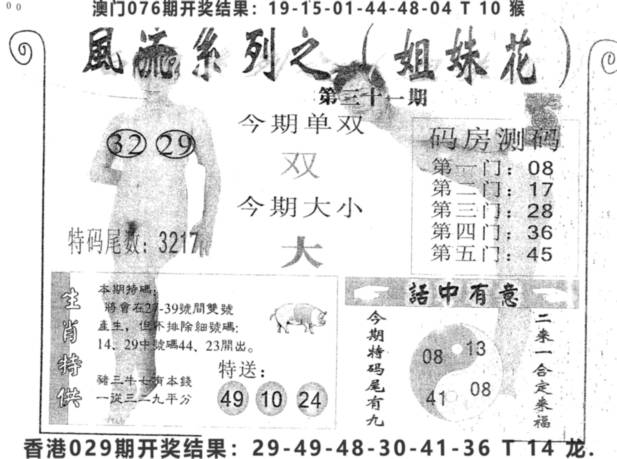 澳门076期开奖结果：19-15-01-44-48-04 T 10 猴
風流系列之（姐妹花）
第三十一期
32 29
今期单双
双
今期大小
大
特码尾数：3217
码房测码
第一门：08
第二门：17
第三门：28
第四门：36
第五门：45
生肖特供
本期特碼：
將會在27-39號間雙號
產生，但不排除細號碼：
14、29中號碼44、23開出。
豬三牛七有本錢
一從三二九平分
特送：
49 10 24
話中有意
今期特码尾有九
08 13
41 08
二来一合定来福
香港029期开奖结果：29-49-48-30-41-36 T 14 龙.